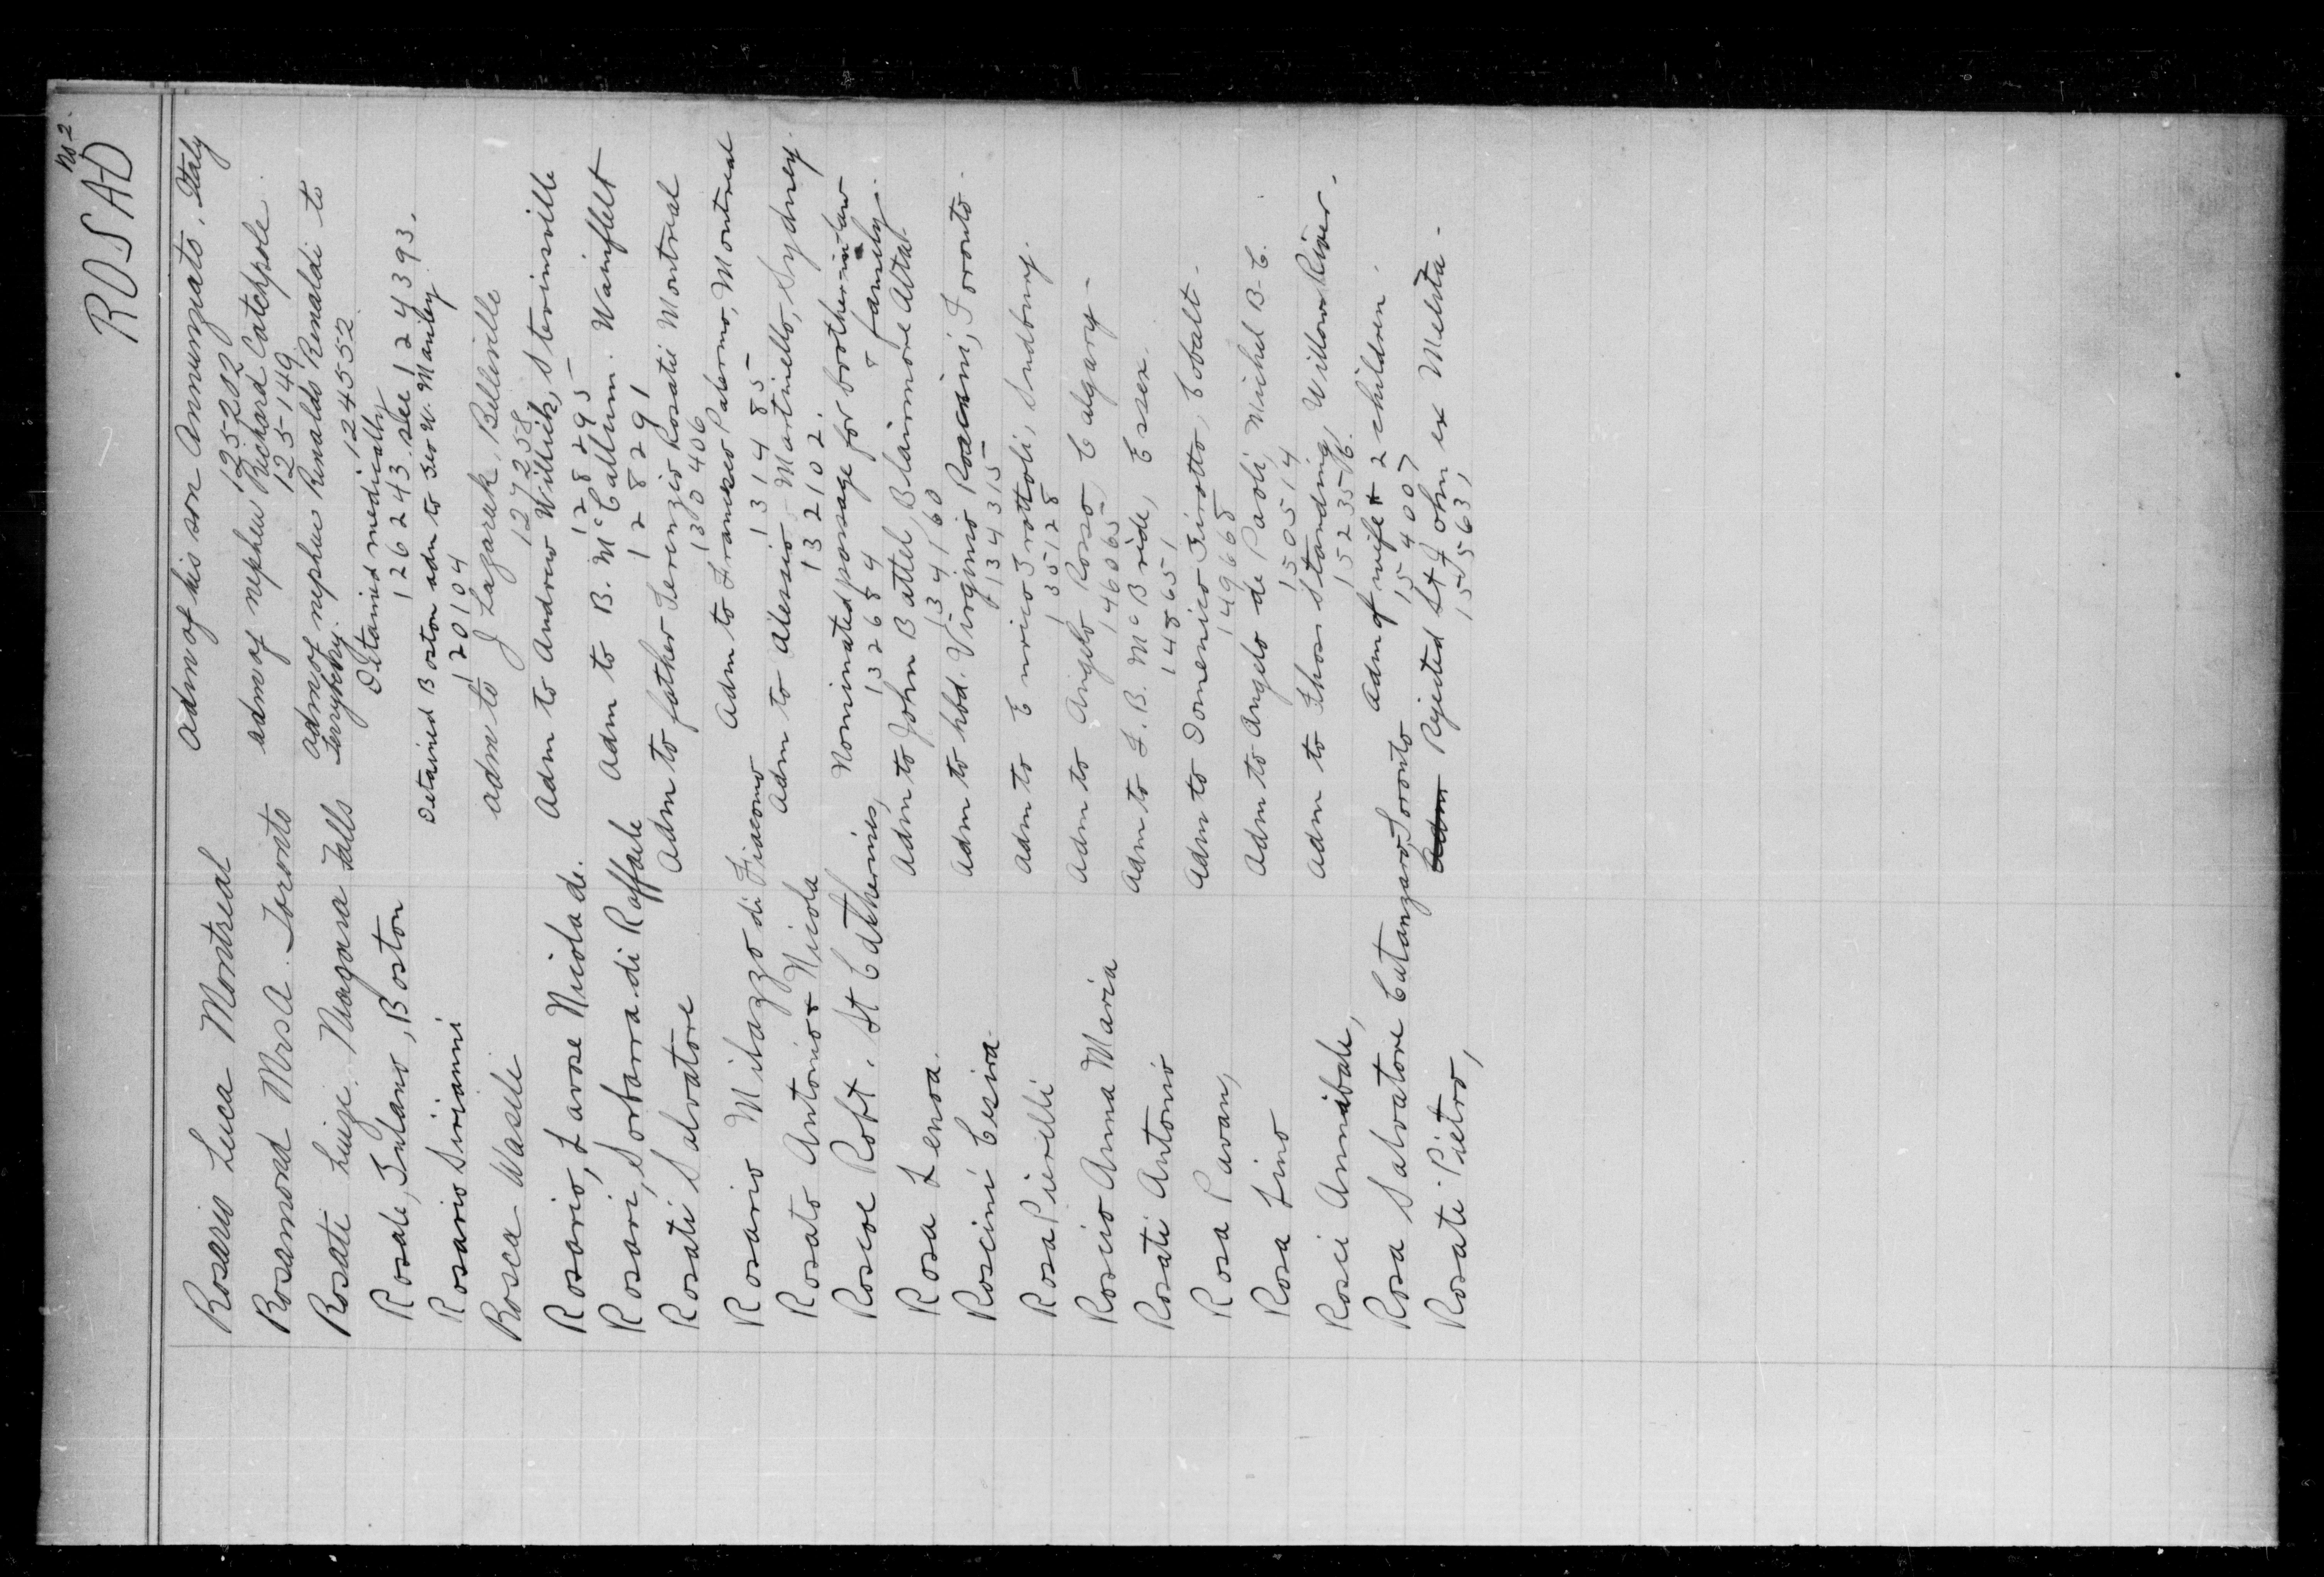 No 2.
ROSAD
Rosario Luca Montreal adm of his son Annunziato, Italy
125282
Rosamond Mrs A. Toronto adm of nephew Richard Catchpole
125149
Rosati Luigi. Niagara Falls adm of nephew Renaldo Renaldi to
124552
Rosale, Boston Detained medically
126243. See 124393.
Rosario Sirianni Detained Boston adm to Geo W. Manley
120104
Rosca Wasili adm to J Lazaruk, Belleville
127258
Rosario, Lavose Nicola di. Adm to Andrew Willick, Stevinsville
128295
Rosari, Sorbarra di Raffaele Adm to B. McCallum. Wainflelt
128291
Rosati Salvatore Adm to father Terenzio Rosati Montreal
130406
Rosario Milazzo di Giacomo Adm to Francesco Palermo, Montreal
131485
Rosato Antonio & Nicola Adm to Alessio Martinello, Sydney.
132102.
Roscoe Robt. St Catherines, Nominated passage for brother-in-law
132684 & family.
Rosa Lena. Adm to John Battel Blairmore Alta.
134160
Roscini Cesira. Adm to hbd. Virginio Roscini, Toronto.
134315
Rosa Pierilli Adm to Enrico Trottoli, Sudbury.
135128
Roscio Anna Maria Adm to Angelo Rosso, Calgary -
146065
Rosati Antonio Adm to L. B. McBride, Essex.
148651
Rosa Pavan, Adm to Domenico Girotto, Cobalt -
149668
Rosa Lino Adm to Angelo de Paoli, Michel B.C.
150514
Rosci Annibale, Adm to Thos Standing, Willow River,
152356.
Rosa Salvatore Catanzaro, Toronto Adm of wife & 2 children.
154007
Rosati Pietro, Adm Rejected St John ex Melita -
155563,